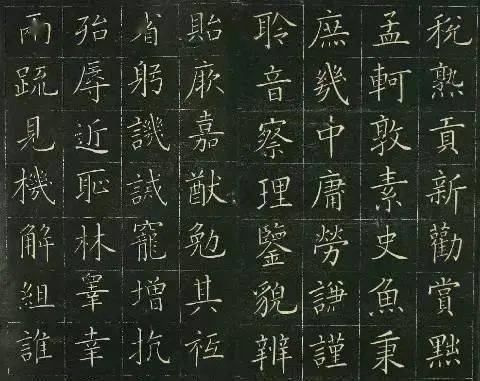 稅熟貢新勸賞黜
孟軻敦素史魚秉
庶幾中庸勞謙謹
聆音察理鑒貌辨
貽厥嘉猷勉其祗
省躬譏誡寵增抗
殆辱近恥林皋幸
兩疏見機解組誰